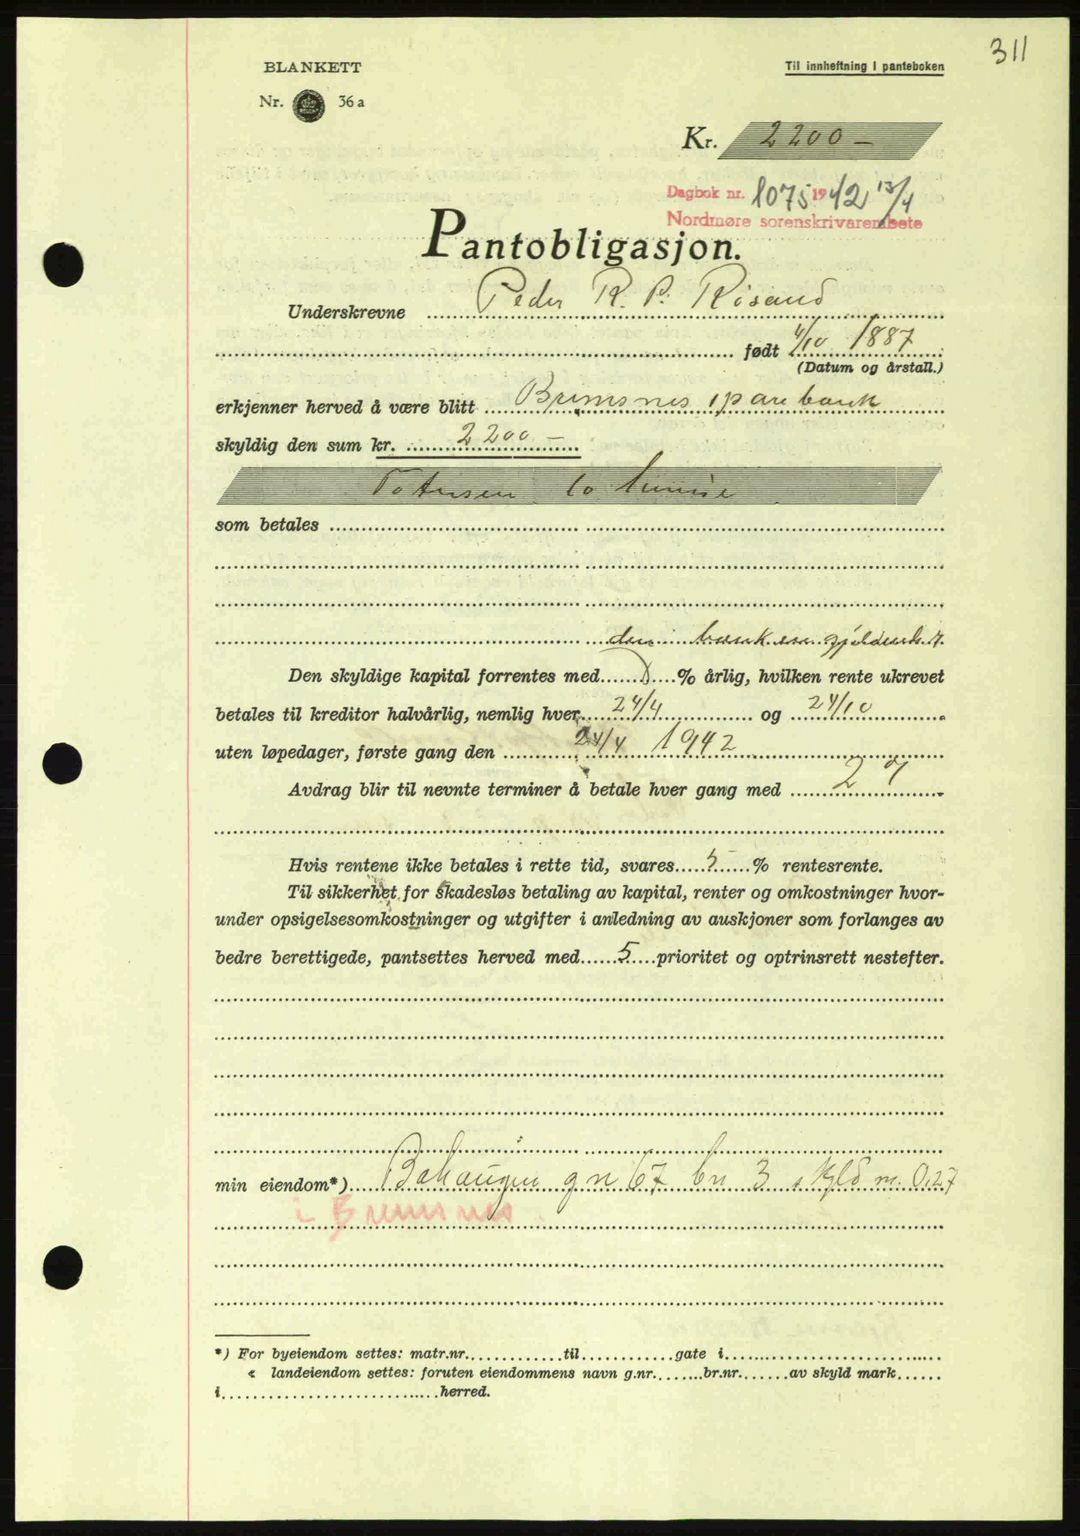 311
BLANKETT
Til innheftning i panteboken
Nr. 36 a
Kr. 2200 —
Dagbok nr. 1075 1942 13/4
Nordmøre sorenskrivarembete
Pantobligasjon.
Underskrevne Peder R. P. Røsand
født 4/10 1887
(Datum og årstall.)
erkjenner herved å være blitt Bremsnes sparebank
skyldig den sum kr. 2200 —
To tusen to hundre
som betales
den i banken gjeldende r.
Den skyldige kapital forrentes med % årlig, hvilken rente ukrevet
betales til kreditor halvårlig, nemlig hver 24/4 og 24/10
uten løpedager, første gang den 24/4 1942
Avdrag blir til nevnte terminer å betale hver gang med 2 %
Hvis rentene ikke betales i rette tid, svares 5 % rentesrente.
Til sikkerhet for skadesløs betaling av kapital, renter og omkostninger hvor-
under opsigelsesomkostninger og utgifter i anledning av auskjoner som forlanges av
bedre berettigede, pantsettes herved med 5 prioritet og optrinsrett nestefter.
min eiendom*) Bakhaugen gn 67 bn 3 skyld m. 0,27
i Bremsnes.
*) For byeiendom settes: matr.nr. til gate i
« landeiendom settes: foruten eiendommens navn g.nr. br.nr. av skyld mark
i herred.